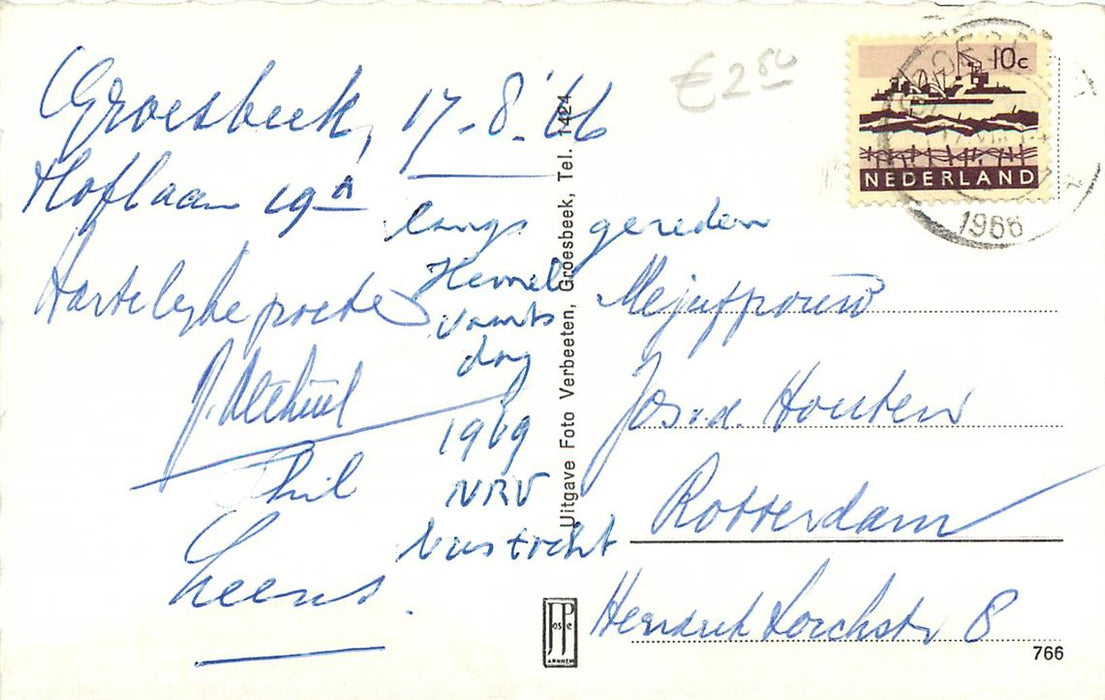 Groesbeek, 17-8-'66
Hoflaan 19A
Hartelijke groeten
J.
Phil
Leens.
langs gereden
Hemel
vaarts
dag
1969
NRV
bustocht
€ 2 50
10c
NEDERLAND
1966
Uitgave Foto Verbeeten, Groesbeek, Tel. 1424
JosPe
ARNHEM
Mejuffrouw
Jos v.d. Houten
Rotterdam
Hendrik Sorchstr 8
766